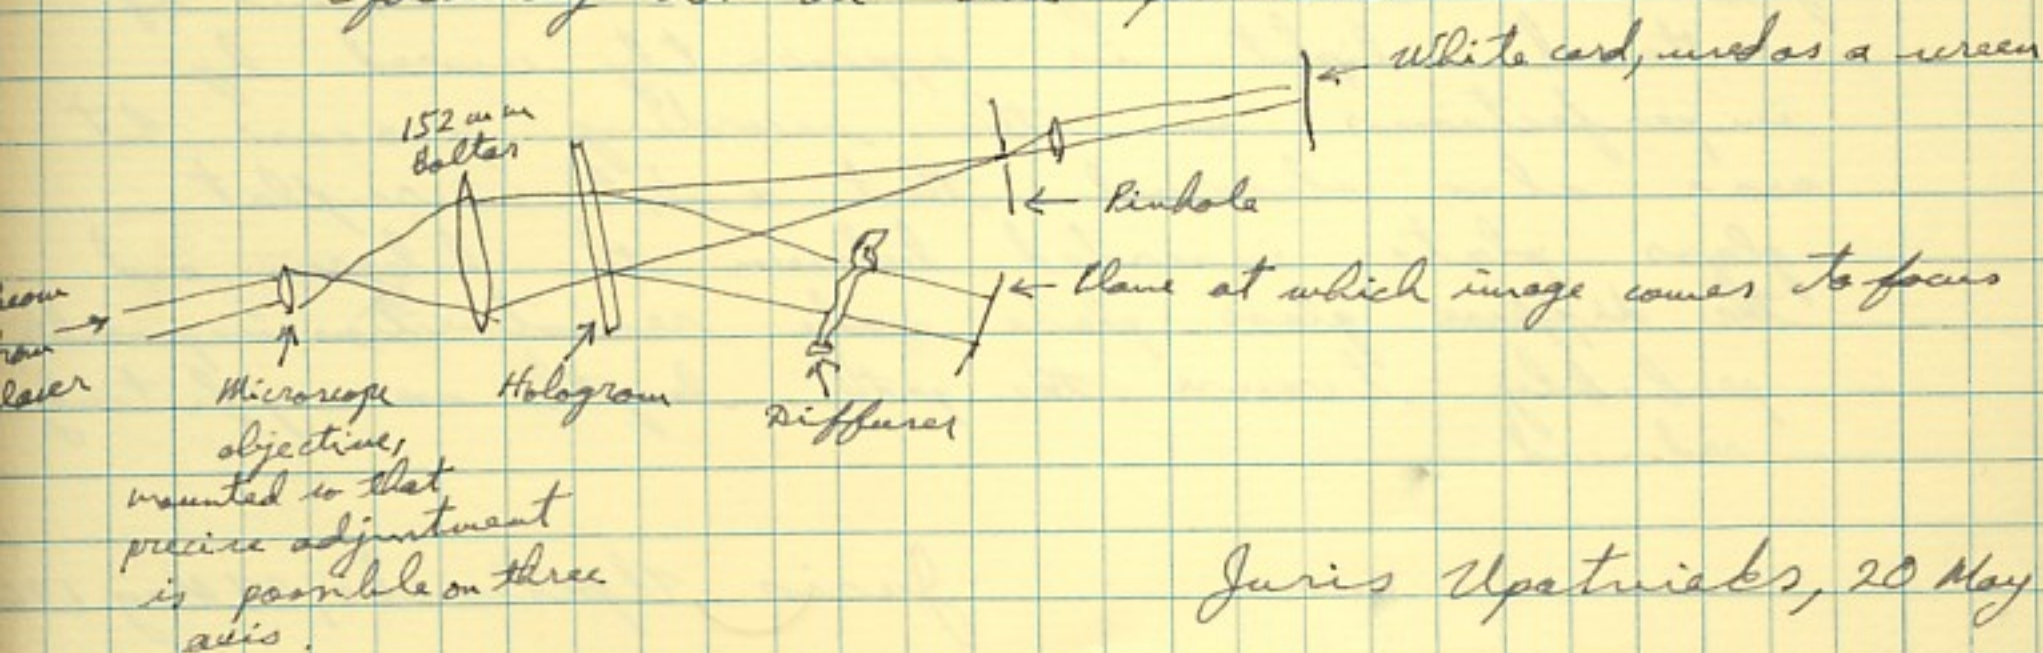 White card, used as a screen
152 mm
Baltar
Pinhole
Plane at which image comes to focus
beam
from
laser
Microscope
objective,
mounted so that
precise adjustment
is possible on three
axis.
Hologram
Diffuser
Juris Upatnieks, 20 May